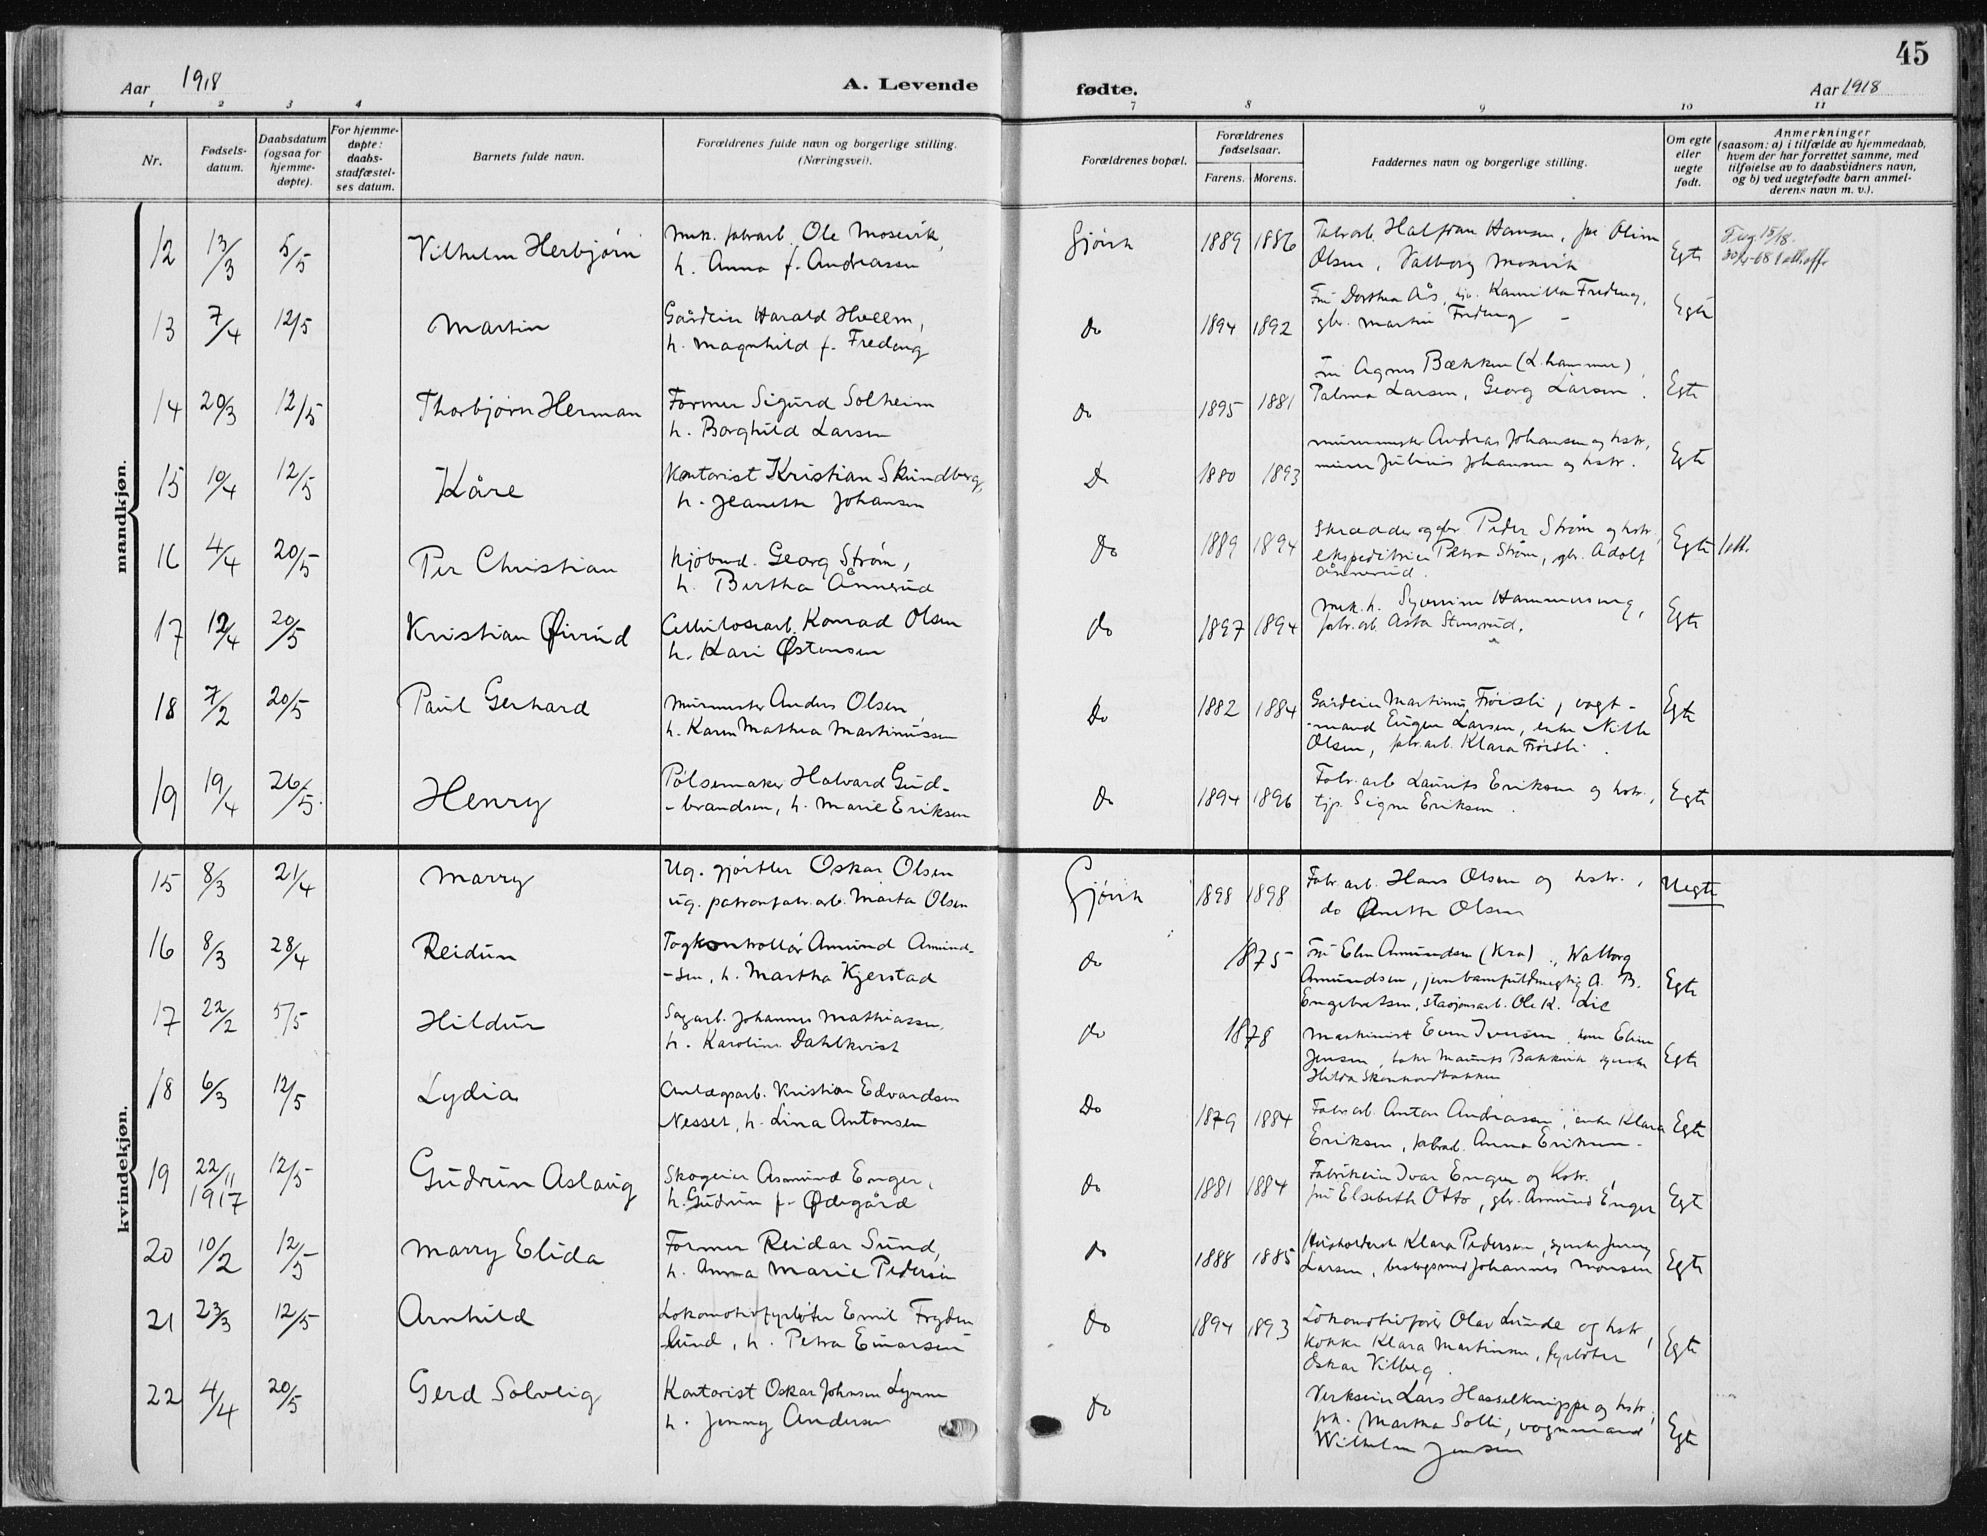 Aar 1918 A. Levende
1 2 3 4
Nr. Fødsels-datum. Daabsdatum (ogsaa for hjemme-døpte). For hjemme-døpte: daabs-stadfæstel-ses datum. Barnets fulde navn. Forældrenes fulde navn og borgerlige stilling. (Næringsvei).
mandkjøn.
12 13/3 5/5 Vilhelm Herbjørn Mek. fabrarb. Ole Mosevik,
h. Anna f. Andreassen
13 7/4 12/5 Martin Gårdeier Harald Hveem,
h. Magnhild f. Fredeng
14 20/3 12/5 Thorbjørn Herman Former Sigurd Solheim
h. Borghild Larsen
15 10/4 12/5 Kåre Kontorist Kristian Skundberg,
h. Jeanette Johansen
16 4/4 20/5 Per Christian Kjøbmd. Georg Strøm,
h. Bertha Ånnerud
17 12/4 20/5 Kristian Øivind Cellulosearb. Konrad Olsen
h. Kari Østensen
18 7/2 20/5 Paul Gerhard Murmester Anders Olsen,
h. Karen Mathea Martinussen
19 19/4 26/5. Henry Pølsemaker Halvard Gud-
-brandsen, h. Marie Eriksen
kvindekjøn.
15 8/3 21/4 Marry Ug. gjørtler Oskar Olsen
ug. patronfabr.arb. Marta Olsen
16 8/3 28/4 Reidun Togkontrollør Amund Amund-
-sen, h. Martha Kjerstad
17 22/2 5/5 Hildur Sagarb. Johannes Mathiassen,
h. Karoline Dahlkvist
18 6/3 12/5 Lydia Anlægsarb. Kristian Edvardsen
Nesset, h. Lina Antonsen
19 22/11 1917 12/5 Gudrun Aslaug Skogeier Asmund Enger,
h. Gudrun f. Ødegård
20 10/2 12/5 Marry Elida Former Reidar Sund,
h. Anna Marie Pedersen
21 23/3 12/5 Arnhild Lokomotivfyrbøter Emil Fryden
lund, h. Petra Einarsen
22 4/4 20/5 Gerd Solveig Kontorist Oskar Johnsen Lynne
h. Jenny Andersen
45
fødte. Aar 1918
7 8 9 10 11
Forældrenes bopæl. Forældrenes fødselsaar. Farens. Morens. Faddernes navn og borgerlige stilling. Om egte eller uegte født. Anmerkninger (saasom: a) i tilfælde av hjemmedaab, hvem der har forrettet samme, med tilføielse av to daabsvidners navn, og b) ved uegtefødte barn anmel-derens navn m. v.).
Gjøvik 1889 1886 Fabrarb. Halfdan Hansen, frk Oline
Olsen, Valborg Mosevik Egte
Do 1894 1892 Fru Dorthea Ås, Kamilla Fredeng,
gbr. Martin Fredeng - Egte
Do 1895 1881 Fru Agnes Bækken (L.hammer),
Palma Larsen, Georg Larsen. Egte
Do 1880 1893 Murmester Andreas Johansen og hstr,
murer Julius Johansen og hstr. Egte
Do 1889 1894 Skrædder Peder Strøm og hstr,
ekspeditrice Petra Strøm, gbr. Adolf
Ånnerud. Egte Att.
Do 1897 1894 Mek. h. Syverin Hammerseng,
fabr.arb. Asta Stensrud. Egte
Do 1882 1884 Gårdeier Martinus Frøisli, vogt-
-mand Eugen Larsen, enke
Olsen, fabr.arb. Klara Frøisli. Egte
Do 1894 1896 Fabr.arb Laurits Eriksen og hstr.,
tjp. Signe Eriksen. Egte
Gjøvik 1898 1898 Fabr.arb. Hans Olsen og hstr.,
do Anette Olsen Uegte
do 1875 Fru Elen Amundsen (Kra)., Walborg
Amundsen, jernbanefuldmegtig A. B.
Engebretsen, stasjonsarb. Ole K. Lie Egte
do 1878 Maskinist Even Iversen,
Jensen, Egte
Do 1879 1884 Fabr.arb. Anton Andreassen, enke Klara
Eriksen, fabrarb. Anna Eriksen. Egte
do 1881 1884 Fabrikeier Ivar Enger og hstr.
fru Elsebeth Otto, gbr. Amund Enger Egte
do 1888 1885 Husholderske Klara Pedersen, syerske Jenny
Larsen, beslagsmed Johannes Monsen Egte
Do 1894 1893 Lokomotivfører Olav Lunde og hstr,
kokke Klara Martinsen, fyrbøter
Oskar Vilberg. Egte
do Verkseier Lars Hasselknippe og hstr,
frk. Martha Solli, vognmand
Wilhelm Jensen Egte